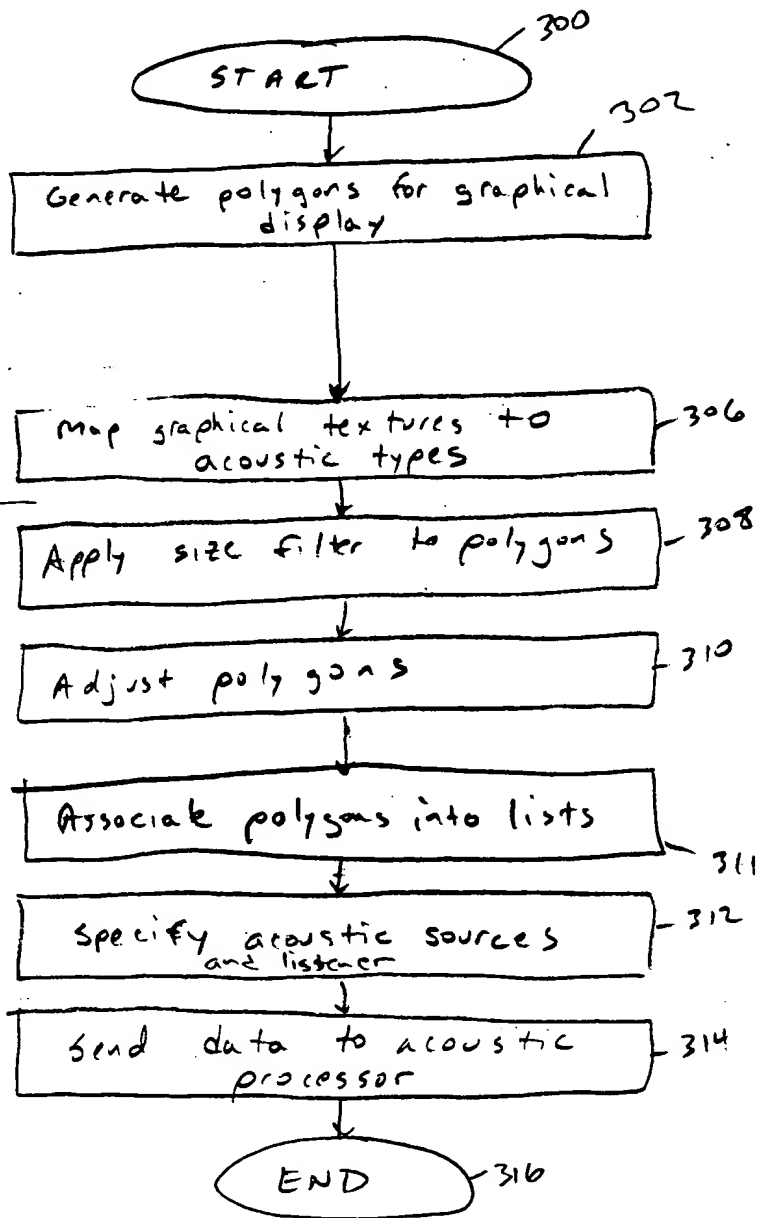 300
START
302
Generate polygons for graphical
display
Map graphical textures to
acoustic types
306
Apply size filter to polygons
308
Adjust polygons
310
Associate polygons into lists
311
Specify acoustic sources
and listener
312
Send data to acoustic
processor
314
END
316